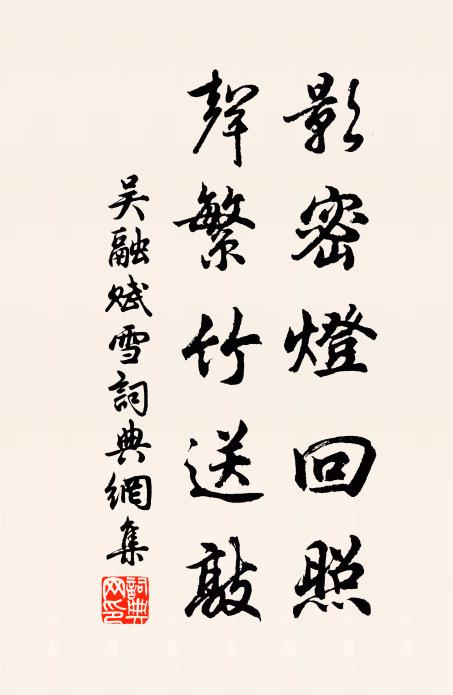 影密燈回照
聲繁竹送敲
吴融賦雪詞典網集